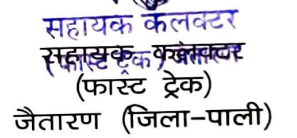 सहायक कलक्टर
सहायक कलक्टर
(फास्ट ट्रेक)
(फास्ट ट्रेक)
जैतारण (जिला-पाली)